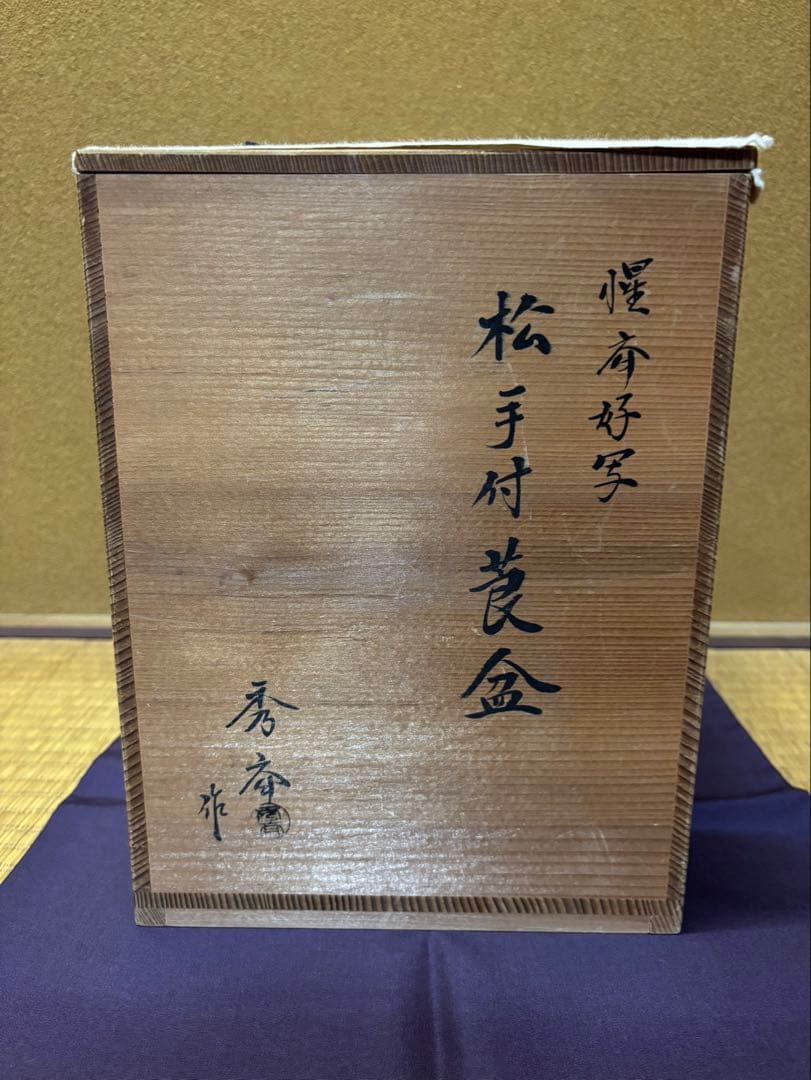 惺斎好写
松手付莨盆
秀斎
作